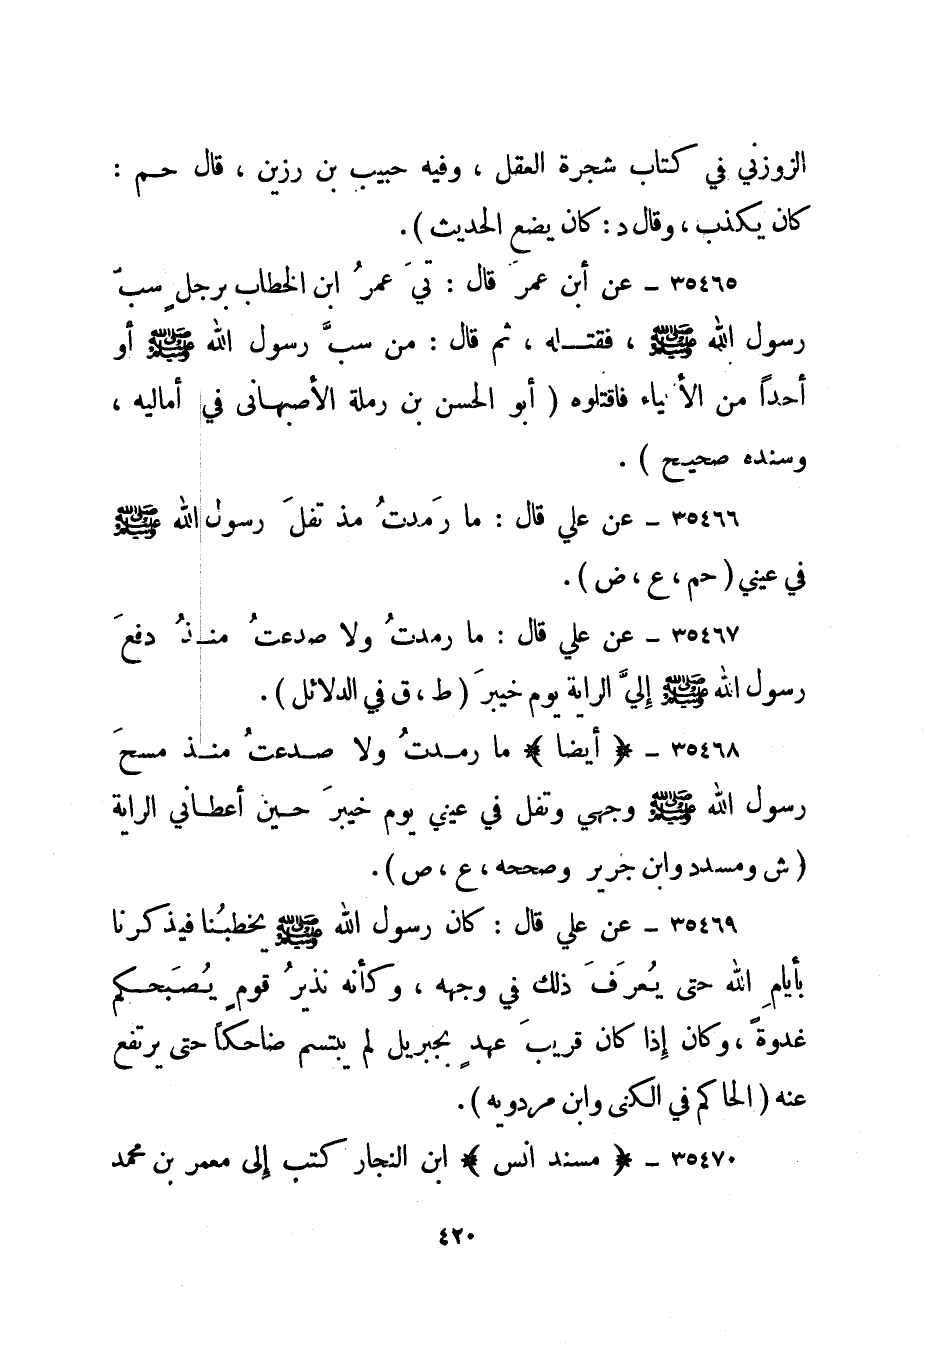 الزوزني في كتاب شجرة العقل ، وفيه حبيب بن رزين ، قال حم :
كان يكذب ، وقال د : كان يضع الحديث ) .
٣٥٤٦٥ ـ عن أبن عمرَ قال : تيَ عمرُ ابن الخطاب برجلٍ سبّ
رسول الله ﷺ ، فقتله ، ثم قال : من سبَّ رسول الله ﷺ أو
أحداً من الأنبياء فاقتلوه ( أبو الحسن بن رملة الأصبهانى في أماليه ،
وسنده صحيح ) .
٣٥٤٦٦ ـ عن علي قال : ما رَمدتُ مذ تفلَ رسول الله ﷺ
في عيني ( حم ، ع ، ض ) .
٣٥٤٦٧ ـ عن علي قال : ما رمدتُ ولا صدعتُ منذُ دفعَ
رسول الله ﷺ إليَّ الراية يوم خيبرَ ( ط ، ق في الدلائل ) .
٣٥٤٦٨ ـ ﴿ أيضا ﴾ ما رمدتُ ولا صدعتُ منذ مسحَ
رسول الله ﷺ وجهي وتفل في عيني يوم خيبرَ حين أعطاني الراية
( ش ومسدد وابن جرير وصححه ، ع ، ص ) .
٣٥٤٦٩ ـ عن علي قال : كان رسول الله ﷺ يخطبُنا فيذكرنا
بأيامِ الله حتى يُعرَفَ ذلك في وجهه ، وكأنه نذيرُ قومٍ يُصَبحكم
غدوةً ، وكان إذا كان قريبَ عهدٍ بجبريل لم يبتسم ضاحكاً حتى يرتفع
عنه ( الحاكم في الكنى وابن مردويه ) .
٣٥٤٧٠ ـ ﴿ مسند انس ﴾ ابن النجار كتب إلى معمر بن محمد
٤٢٠